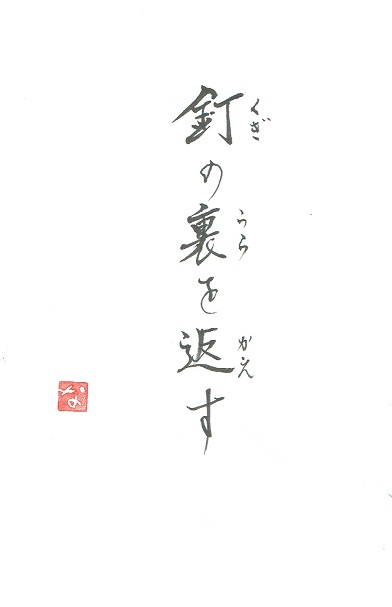 釘の裏を返す
くぎ
うら
かえ
な